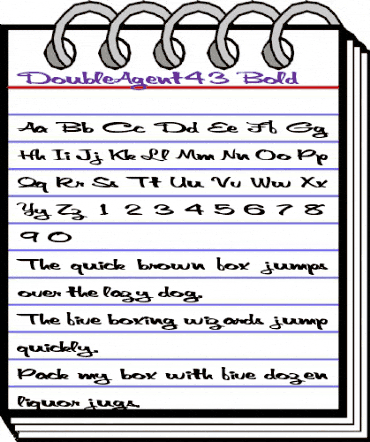 DoubleAgent43 Bold
Aa Bb Cc Dd Ee Ff Gg
Hh Ii Jj Kk Ll Mm Nn Oo Pp
Qq Rr Ss Tt Uu Vv Ww Xx
Yy Zz 1 2 3 4 5 6 7 8
9 0
The quick brown fox jumps
over the lazy dog.
The five boxing wizards jump
quickly.
Pack my box with five dozen
liquor jugs.